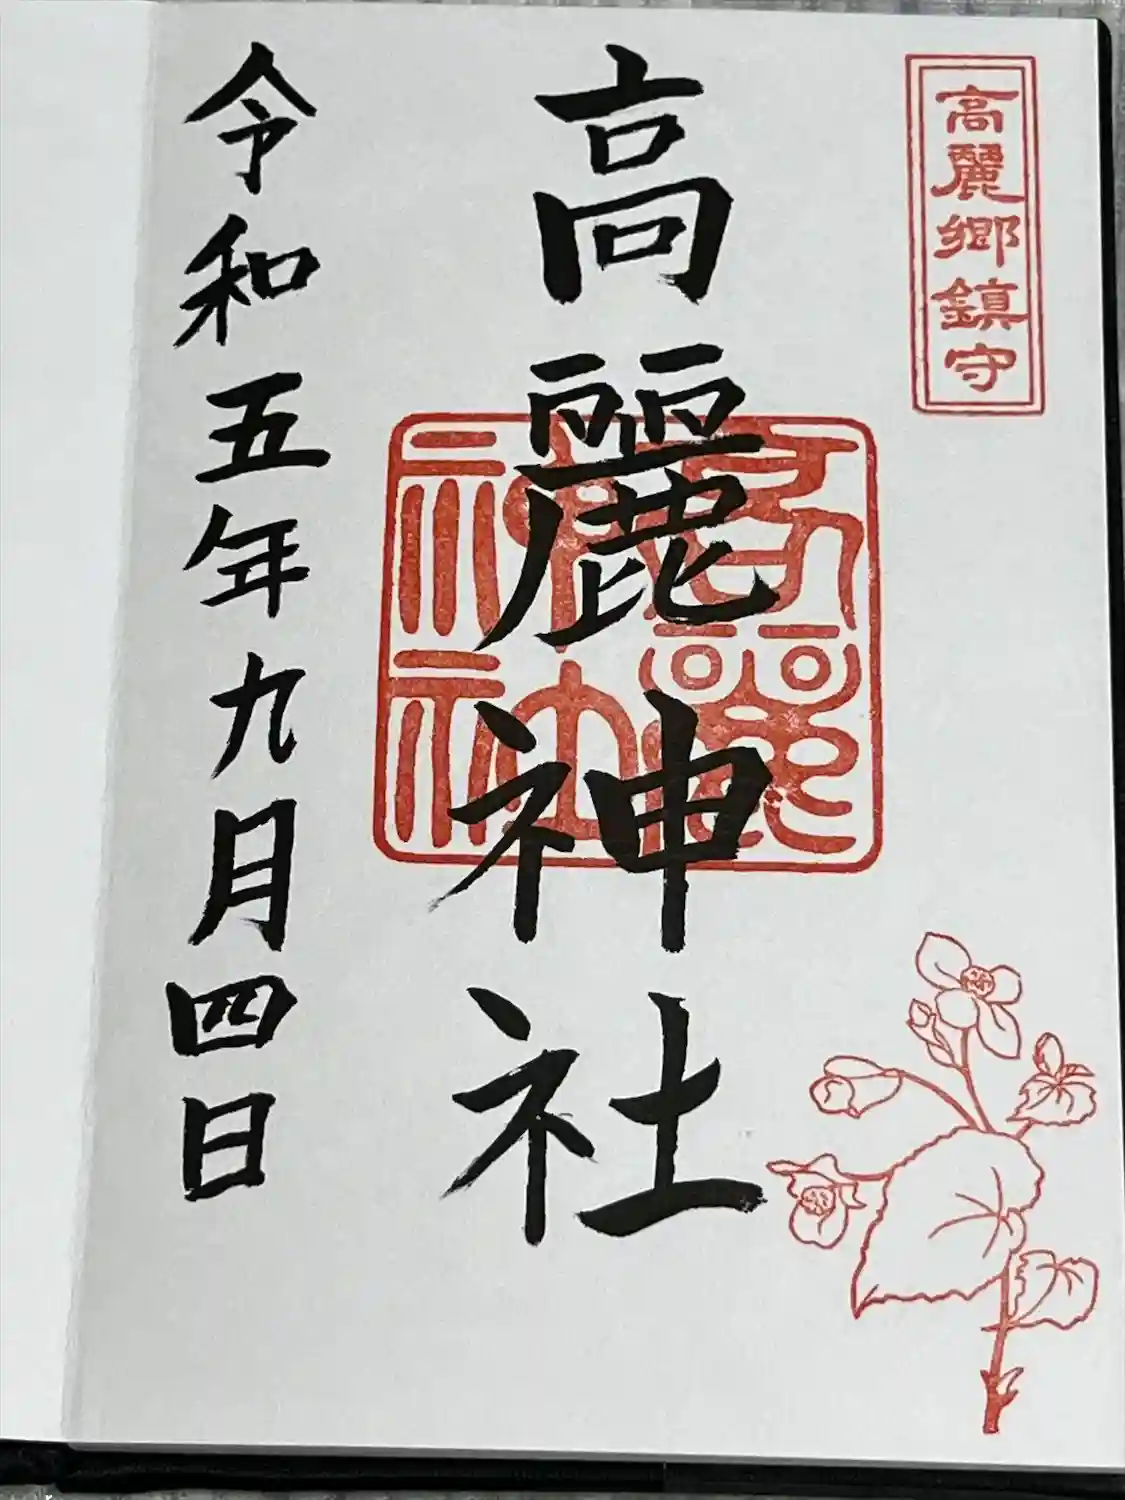 高麗郷鎮守
高麗神社
高麗神社
令和五年九月四日